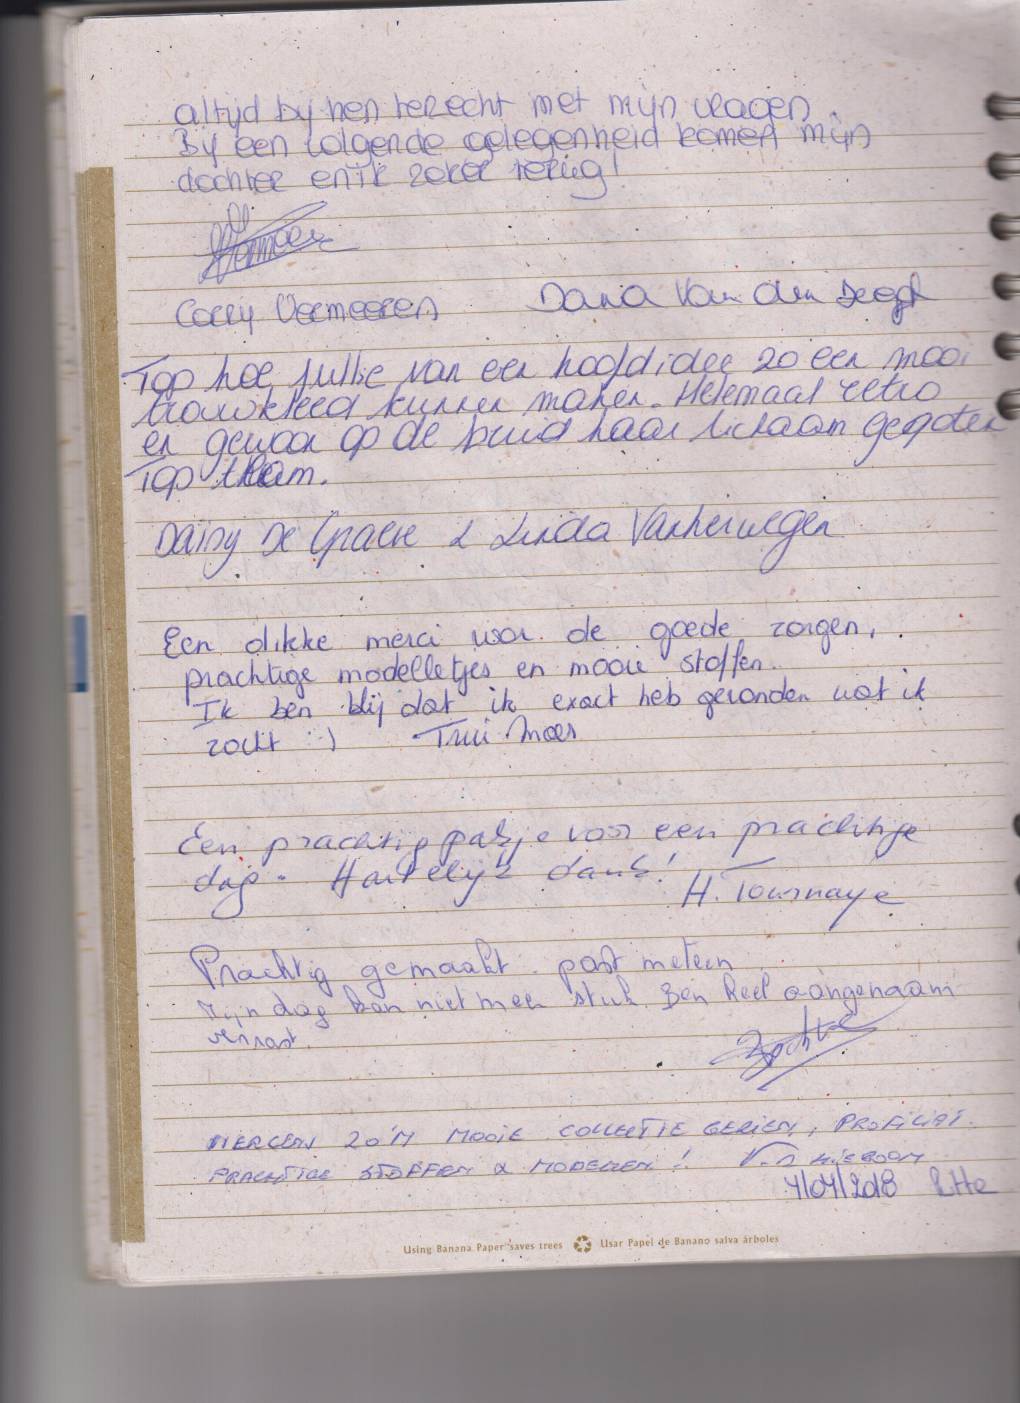 altijd by hen terecht met mijn vragen.
By een volgende gelegenheid komen mijn
dochter en ik zeker terug!
Vermeeren
Corry Vermeeren Dana Van den Bergh
Top hoe jullie van een hoofdidee zo een mooi
trouwkleed kunnen maken. Helemaal retro
en gewoon op de bruid haar lichaam gegoten
Top team.
Daisy De & Linda Vanherwegen
Een dikke merci voor de goede zorgen,
prachtige modelletjes en mooie stoffen.
Ik ben blij dat ik exact heb gevonden wat ik
zocht :) Trui Moes
Een prachtig pakje voor een prachtige
dag. Hartelijk dank!
H. Tournaye
Prachtig gemaakt. past meteen
Mijn dag kan niet meer stuk. Ben heel aangenaam
verrast.
NERGENS ZO'N MOOIE COLLECTIE GEZIEN, PROFICIAT.
PRACHTIGE STOFFEN & MODELLEN!
7/04/2018
Using Banana Paper saves trees Usar Papel de Banano salva árboles